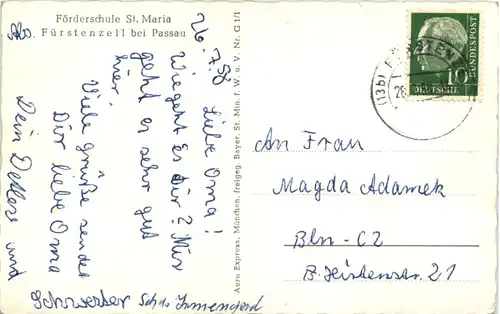 Förderschule St. Maria
Fürstenzell bei Passau
Abs.
26.7.58
Liebe Oma!
Wie geht es Dir? Mir
geht es sehr gut
hier.
Viele Grüße sendet
Dir liebe Oma
Dein Detlef und
Schwester
Aero Express, München, freigeg. Bayer. St. Min. f. W. u. V. Nr. G 1/1
(13b) FÜRSTENZELL
10
DEUTSCHE
BUNDESPOST
An Frau
Magda Adamek
Bln-C2